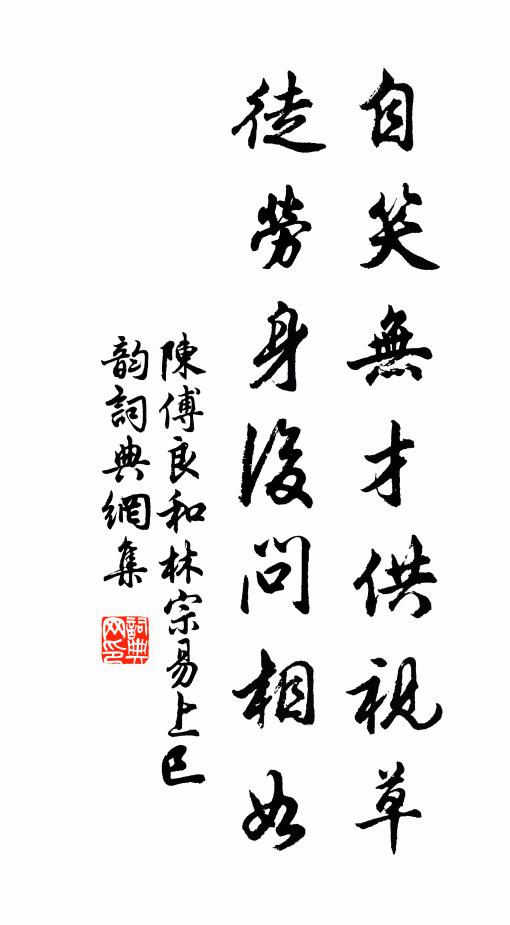 自笑無才供視草
徒勞身後問相如
陳傅良和林宗易上巳
韵詞典網集
詞典网印